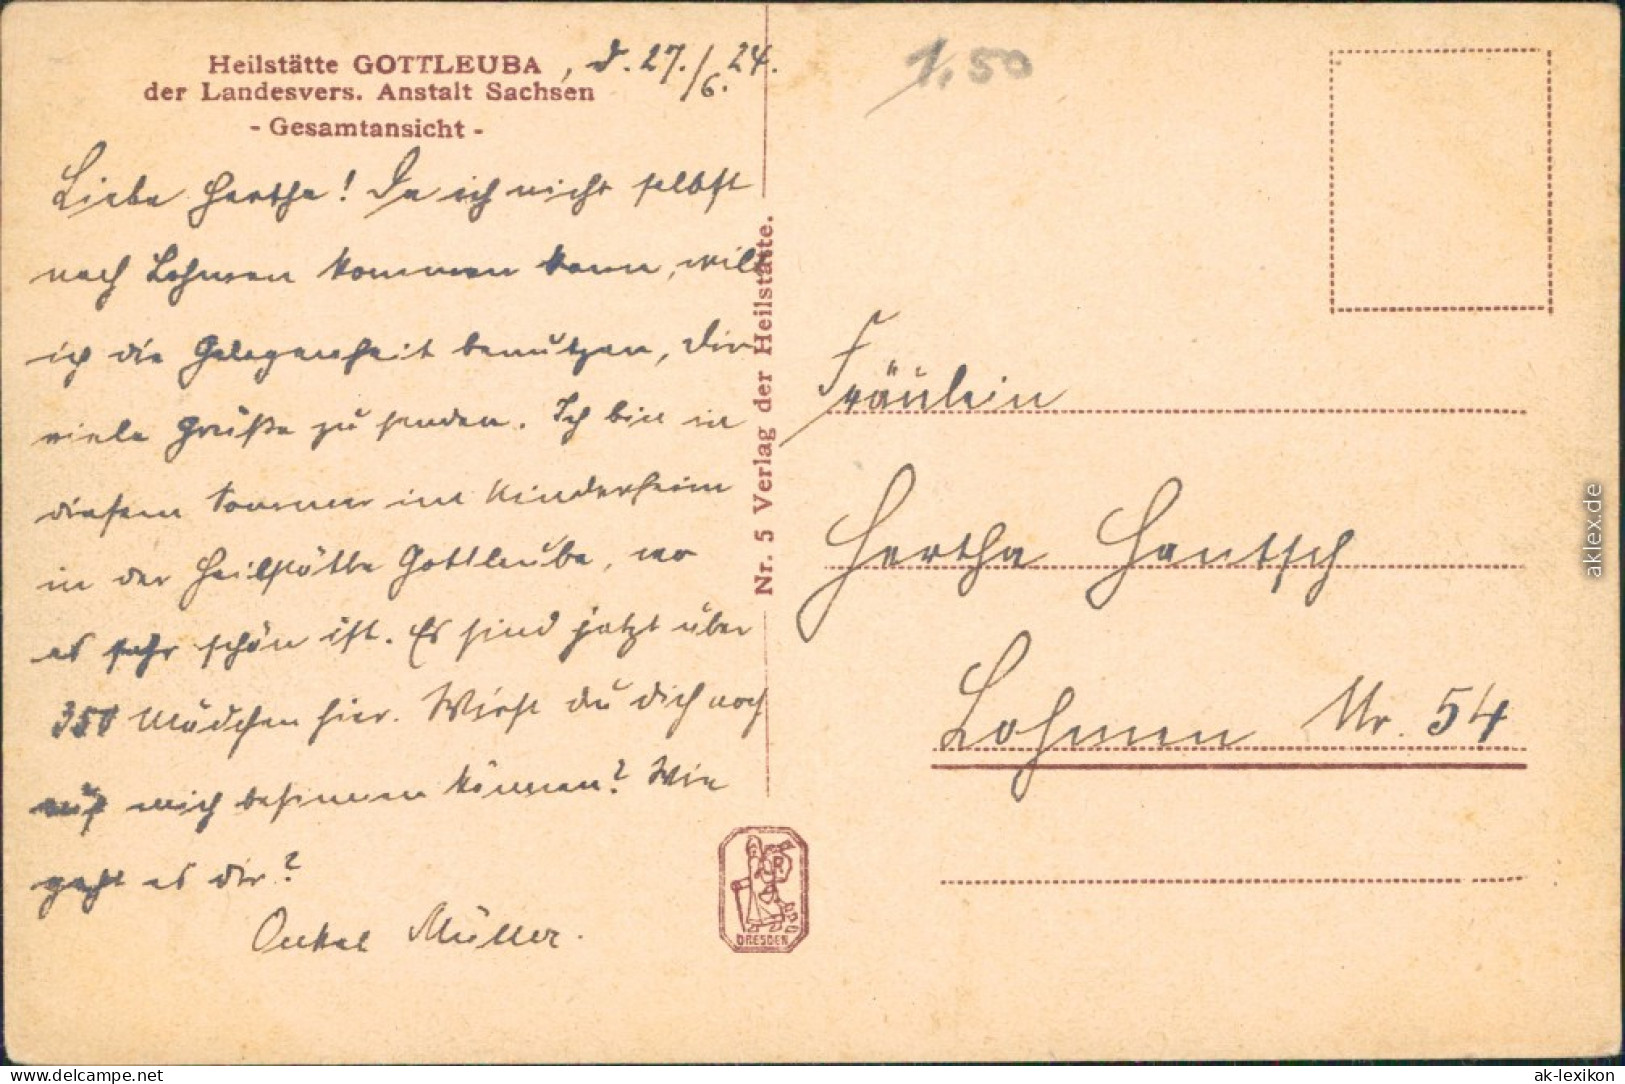 Heilstätte GOTTLEUBA, d. 27./6.24.
der Landesvers. Anstalt Sachsen
- Gesamtansicht -
Liebe Hertha! Da ich nicht selbst
nach Lohmen kommen kann, will
ich die Gelegenheit benutzen, Dir
viele Grüße zu senden. Ich bin in
diesem Sommer im Kinderheim
in der Heilstätte Gottleuba, wo
es sehr schön ist. Es sind jetzt über
350 Mädchen hier. Wirst du dich noch
auf mich besinnen können? Wie
geht es dir?
Onkel Müller.
Nr. 5 Verlag der Heilstätte.
DRESDEN
1,50
Fräulein
Hertha Hantsch
Lohmen Nr. 54
aklex.de
www.delcampe.net
ak-lexikon